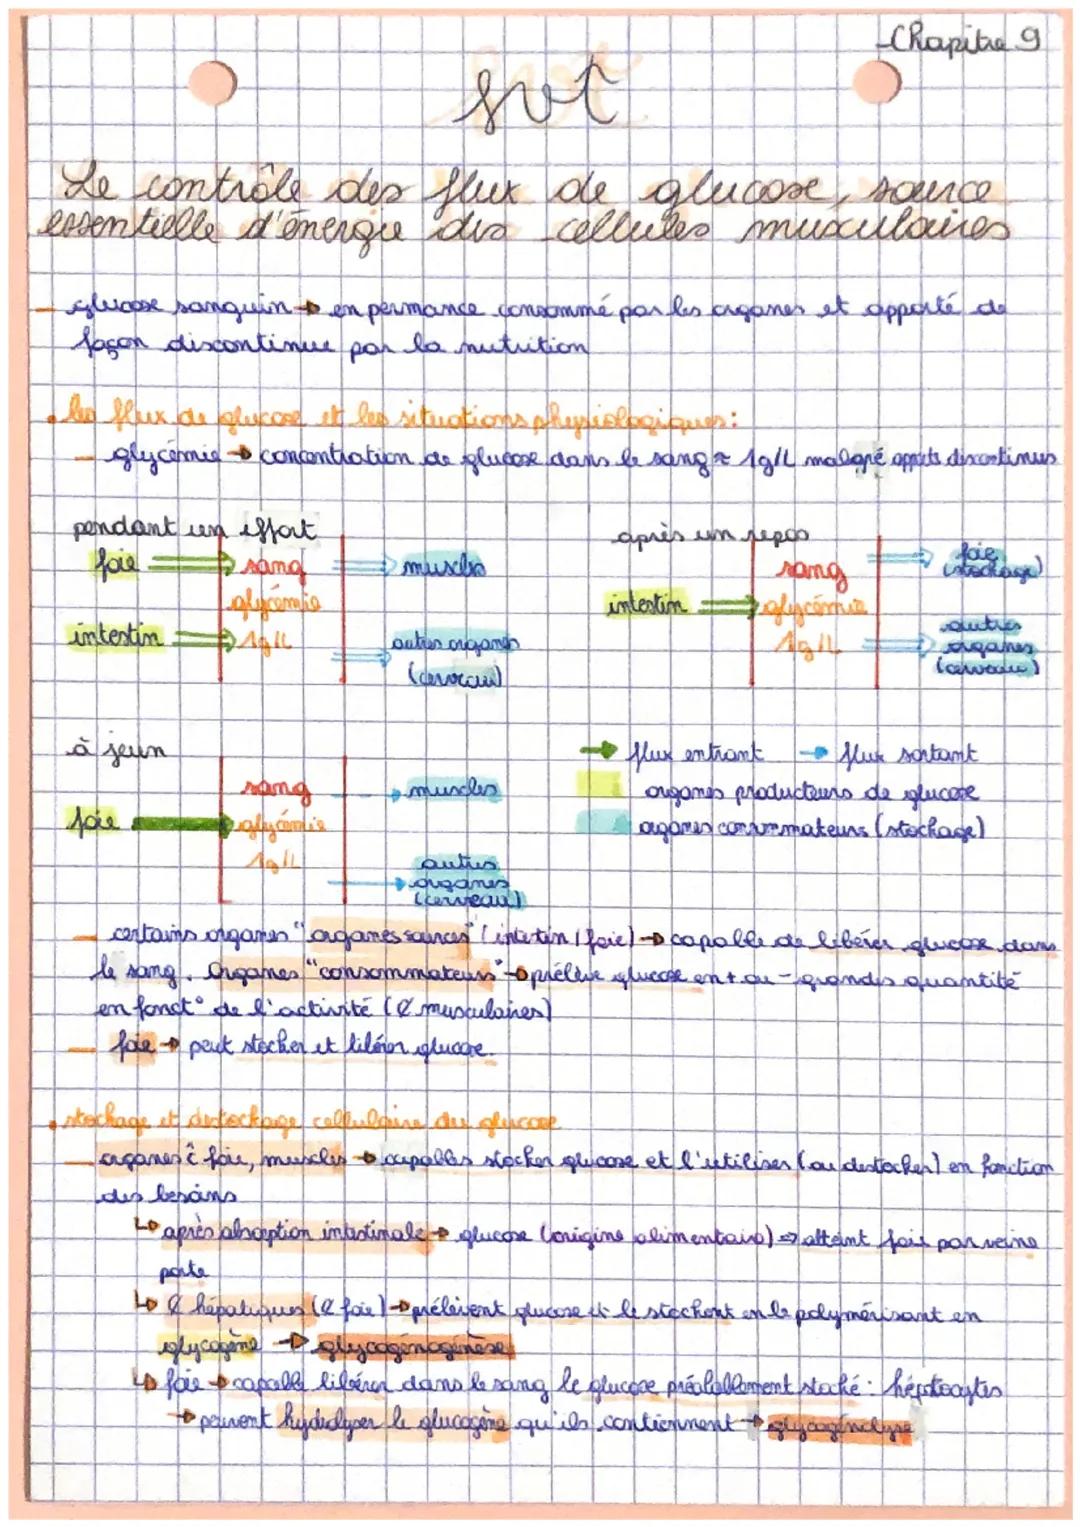 Chapitre 9
svt
Le contrôle des flux de glucose, source
essentielle d'énergie des cellules musculaires
— glucose sanguin → en permance consommé par les organes et apporté de
façon discontinue par la nutrition
• les flux de glucose et les situations physiologiques :
— glycémie → concentration de glucose dans le sang ≈ 1g/L malgré apports discontinus
pendant un effort
foie ⇒ sang ⇒ muscles
glycémie
intestin ⇒ 1g/L ⇒ autres organes
(cerveau)
après un repos
sang ⇒ foie
(stockage)
intestin ⇒ glycémie
1g/L ⇒ autres
organes
(cerveau)
à jeun
sang → muscles
foie → glycémie
1g/L
→ autres
organes
(cerveau)
→ flux entrant → flux sortant
organes producteurs de glucose
organes consommateurs (stockage)
— certains organes "organes sources" (intestin / foie) → capable de libérer glucose dans
le sang. Organes "consommateurs" → prélève glucose en + ou - grandes quantité
en fonct° de l'activité (¢ musculaires)
— foie → peut stocker et libérer glucose.
• stockage et destockage cellulaire du glucose
— organes ĉ foie, muscles → capables stocker glucose et l'utiliser (ou destocker) en fonction
des besoins
↳ après absorption intestinale → glucose (origine alimentaire) ⇒ atteint foie par veine
porte
↳ ¢ hépatiques (¢ foie) → prélèvent glucose et le stockent en le polymérisant en
glycogène → glycogénogénèse
↳ foie → capable libérer dans le sang le glucose préalablement stocké : hépatocytes
→ peuvent hydrolyser le glucogène qu'ils contiennent → glycogénolyse